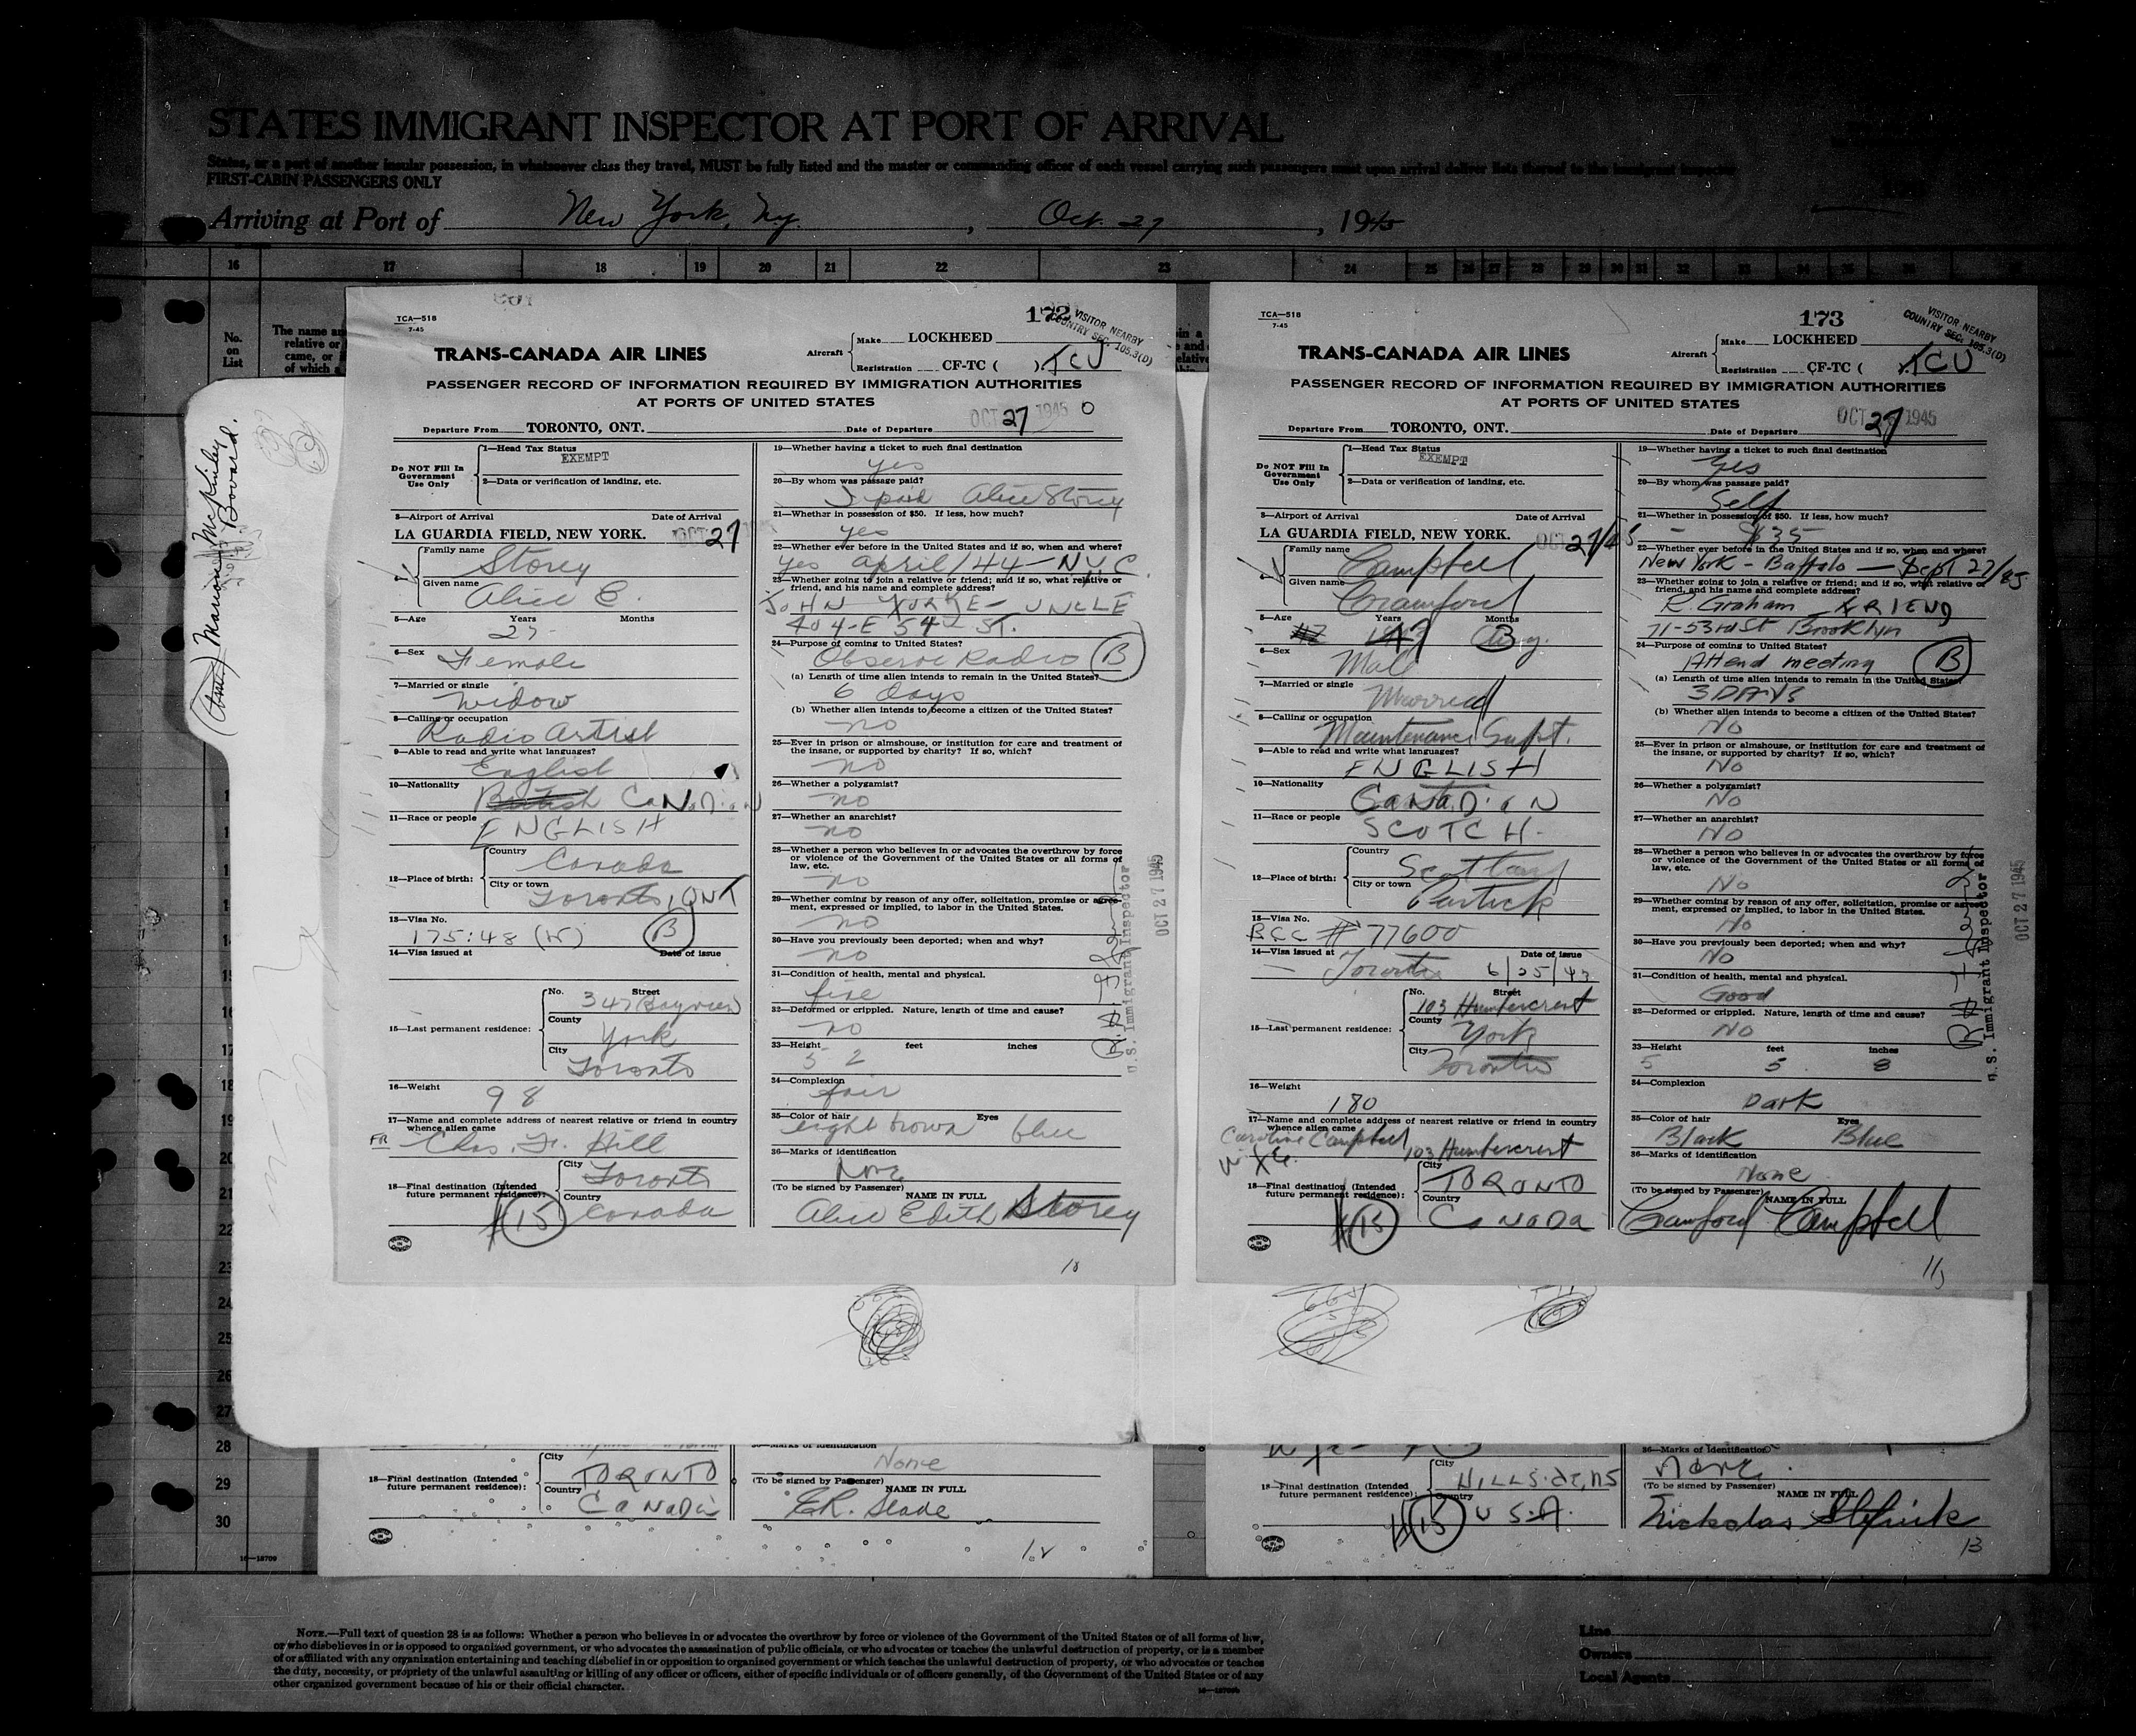 STATES IMMIGRANT INSPECTOR AT PORT OF ARRIVAL
States, or a port of another insular possession, in whatsoever class they travel, MUST be fully listed and the master or commanding officer of each vessel carrying such passengers must upon arrival deliver lists thereof to the immigrant inspector
FIRST-CABIN PASSENGERS ONLY
Arriving at Port of New York, N.Y., Oct. 27, 1945
16 17 18 19 20 21 22 23 24 25 26 27 28 29 30 31 32 33 34 35 36
No. on List
(Aunt) Marion McKinley
Bovard.
TCA—518
7-45
172
VISITOR NEARBY
COUNTRY SEC. 105.3(D)
TRANS-CANADA AIR LINES
Aircraft
Make LOCKHEED
Registration CF-TC ( ) TCU
PASSENGER RECORD OF INFORMATION REQUIRED BY IMMIGRATION AUTHORITIES
AT PORTS OF UNITED STATES
Departure From TORONTO, ONT. Date of Departure OCT 27 1945
Do NOT Fill In Government Use Only
1—Head Tax Status
EXEMPT
2—Data or verification of landing, etc.
3—Airport of Arrival Date of Arrival
LA GUARDIA FIELD, NEW YORK. OCT 27
4— Family name Storey
Given name Alice E.
5—Age Years Months
6—Sex Female
7—Married or single Widow
8—Calling or occupation
Radio Artist
9—Able to read and write what languages?
English
10—Nationality British CaNaDian
11—Race or people ENGLISH
12—Place of birth: Country Canada
City or town Toronto, ONT
13—Visa No.
175:48 (W) B
14—Visa issued at Date of issue
15—Last permanent residence: No. Street 347 Bayview
County York
City Toronto
16—Weight 98
17—Name and complete address of nearest relative or friend in country whence alien came
FR Chas. F. Hill
18—Final destination (Intended future permanent residence): City Toronto
Country Canada
#15
19—Whether having a ticket to such final destination
yes
20—By whom was passage paid?
I paid Alice Storey
21—Whether in possession of $50. If less, how much?
yes
22—Whether ever before in the United States and if so, when and where?
yes April/44 - NYC
23—Whether going to join a relative or friend; and if so, what relative or friend, and his name and complete address?
JOHN YORKE - UNCLE
404-E 54th St.
24—Purpose of coming to United States?
Observe Radio B
(a) Length of time alien intends to remain in the United States?
6 days
(b) Whether alien intends to become a citizen of the United States?
no
25—Ever in prison or almshouse, or institution for care and treatment of the insane, or supported by charity? If so, which?
no
26—Whether a polygamist?
no
27—Whether an anarchist?
no
28—Whether a person who believes in or advocates the overthrow by force or violence of the Government of the United States or all forms of law, etc.
no
29—Whether coming by reason of any offer, solicitation, promise or agreement, expressed or implied, to labor in the United States.
no
30—Have you previously been deported; when and why?
no
31—Condition of health, mental and physical.
fine
32—Deformed or crippled. Nature, length of time and cause?
no
33—Height feet inches
5 2
34—Complexion
fair
35—Color of hair Eyes
light brown blue
36—Marks of identification
None
(To be signed by Passenger) NAME IN FULL
Alice Edith Storey
U.S. Immigrant Inspector
OCT 27 1945
TCA—518
7-45
173
VISITOR NEARBY
COUNTRY SEC. 105.3(D)
TRANS-CANADA AIR LINES
Aircraft
Make LOCKHEED
Registration CF-TC ( TCU
PASSENGER RECORD OF INFORMATION REQUIRED BY IMMIGRATION AUTHORITIES
AT PORTS OF UNITED STATES
Departure From TORONTO, ONT. Date of Departure OCT 27 1945
Do NOT Fill In Government Use Only
1—Head Tax Status
EXEMPT
2—Data or verification of landing, etc.
3—Airport of Arrival Date of Arrival
LA GUARDIA FIELD, NEW YORK. OCT 27/45
4— Family name Campbell
Given name Crawford
5—Age Years Months
47
6—Sex Male
7—Married or single Married
8—Calling or occupation
Maintenance Supt.
9—Able to read and write what languages?
ENGLISH
10—Nationality CaNaDiaN
11—Race or people SCOTCH.
12—Place of birth: Country Scotland
City or town Partick
13—Visa No.
BCC # 77600
14—Visa issued at Date of issue
Toronto 6/25/43
15—Last permanent residence: No. Street 103 Huntercrest
County York
City Toronto
16—Weight
180
17—Name and complete address of nearest relative or friend in country whence alien came
Caroline Campbell, 103 Huntercrest
wife.
18—Final destination (Intended future permanent residence): City TORONTO
Country CaNaDa
#15
19—Whether having a ticket to such final destination
Yes
20—By whom was passage paid?
Self
21—Whether in possession of $50. If less, how much?
- $35
22—Whether ever before in the United States and if so, when and where?
New York - Buffalo - Sept 27/45
23—Whether going to join a relative or friend; and if so, what relative or friend, and his name and complete address?
R. Graham FRIEND
71-53rd St Brooklyn
24—Purpose of coming to United States?
Attend meeting B
(a) Length of time alien intends to remain in the United States?
3 DAYS
(b) Whether alien intends to become a citizen of the United States?
No
25—Ever in prison or almshouse, or institution for care and treatment of the insane, or supported by charity? If so, which?
No
26—Whether a polygamist?
No
27—Whether an anarchist?
No
28—Whether a person who believes in or advocates the overthrow by force or violence of the Government of the United States or all forms of law, etc.
No
29—Whether coming by reason of any offer, solicitation, promise or agreement, expressed or implied, to labor in the United States.
No
30—Have you previously been deported; when and why?
No
31—Condition of health, mental and physical.
Good
32—Deformed or crippled. Nature, length of time and cause?
No
33—Height feet inches
5 5 8
34—Complexion
Dark
35—Color of hair Eyes
Black Blue
36—Marks of identification
None
(To be signed by Passenger) NAME IN FULL
Crawford Campbell
U.S. Immigrant Inspector
OCT 27 1945
11
18—Final destination (Intended future permanent residence): City TORONTO
Country CaNaDa
36—Marks of identification
None
(To be signed by Passenger)
NAME IN FULL
E.R. Slade
12
18—Final destination (Intended future permanent residence): City HILLSiDE, NJ
Country U.S.A.
#15
36—Marks of Identification
None.
(To be signed by Passenger)
NAME IN FULL
13
17
18
19
20
21
22
23
24
25
26
27
28
29
30
16—18709
NOTE.—Full text of question 28 is as follows: Whether a person who believes in or advocates the overthrow by force or violence of the Government of the United States or of all forms of law,
or who disbelieves in or is opposed to organized government, or who advocates the assassination of public officials, or who advocates or teaches the unlawful destruction of property, or is a member
of or affiliated with any organization entertaining and teaching disbelief in or opposition to organized government or which teaches the unlawful destruction of property, or who advocates or teaches
the duty, necessity, or propriety of the unlawful assaulting or killing of any officer or officers, either of specific individuals or of officers generally, of the Government of the United States or of any
other organized government because of his or their official character.
Line
Owners
Local Agents